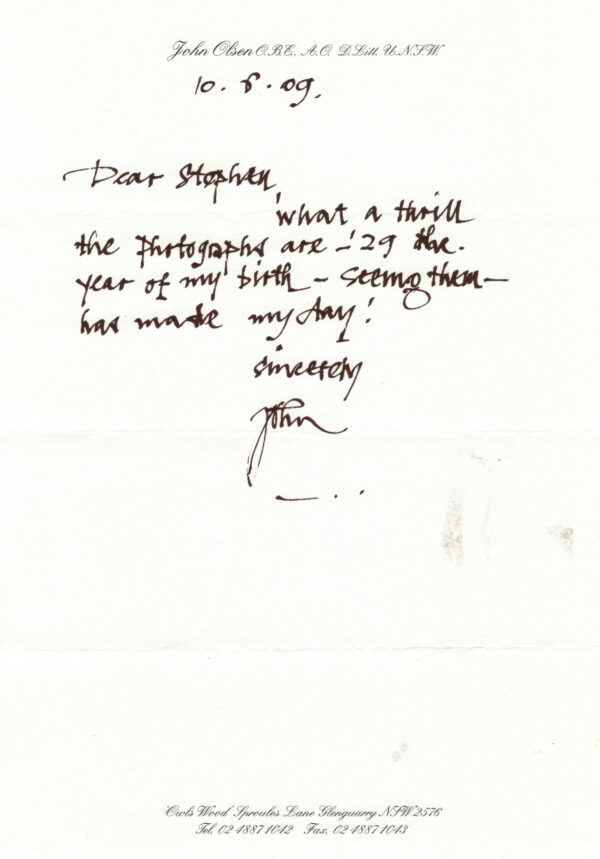 John Olsen O.B.E. A.O. D.Litt. U.N.S.W.
10. 6. 09.
Dear Stephen,
what a thrill
the Photographs are – '29 the
year of my birth – seeing them –
has made my day!
sincerely
John
'Owls Wood' Sproules Lane Glenquarry NSW 2576
Tel. 02 4887 1042 Fax. 02 4887 1043